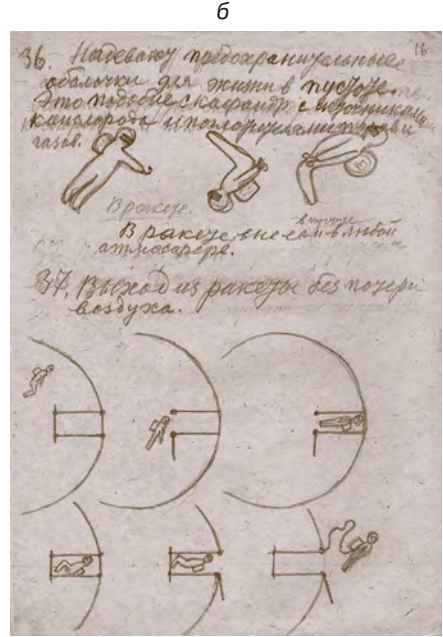 б
16
36. Надеваю предохранительные
оболочки для жизни в пустоте.
Это подобие скафандр с источниками
кислорода и поглотителями паров и
газов.
В ракете.
в пустоте
В ракете, вне её и в любой
атмосфере.
37. Выход из ракеты без потери
воздуха.